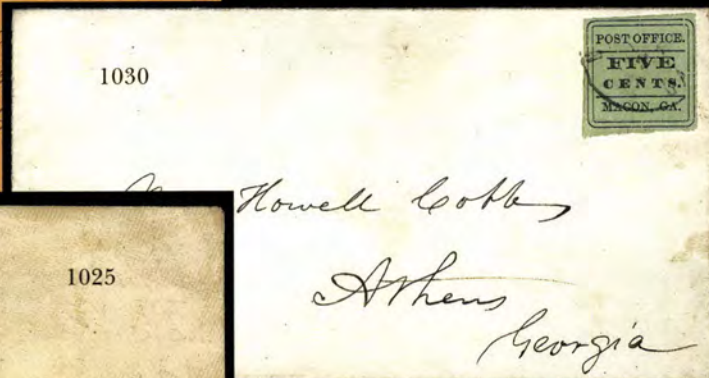 1030
POST OFFICE.
FIVE
CENTS.
MACON, GA.
Howell Cobb
Athens
Georgia
1025